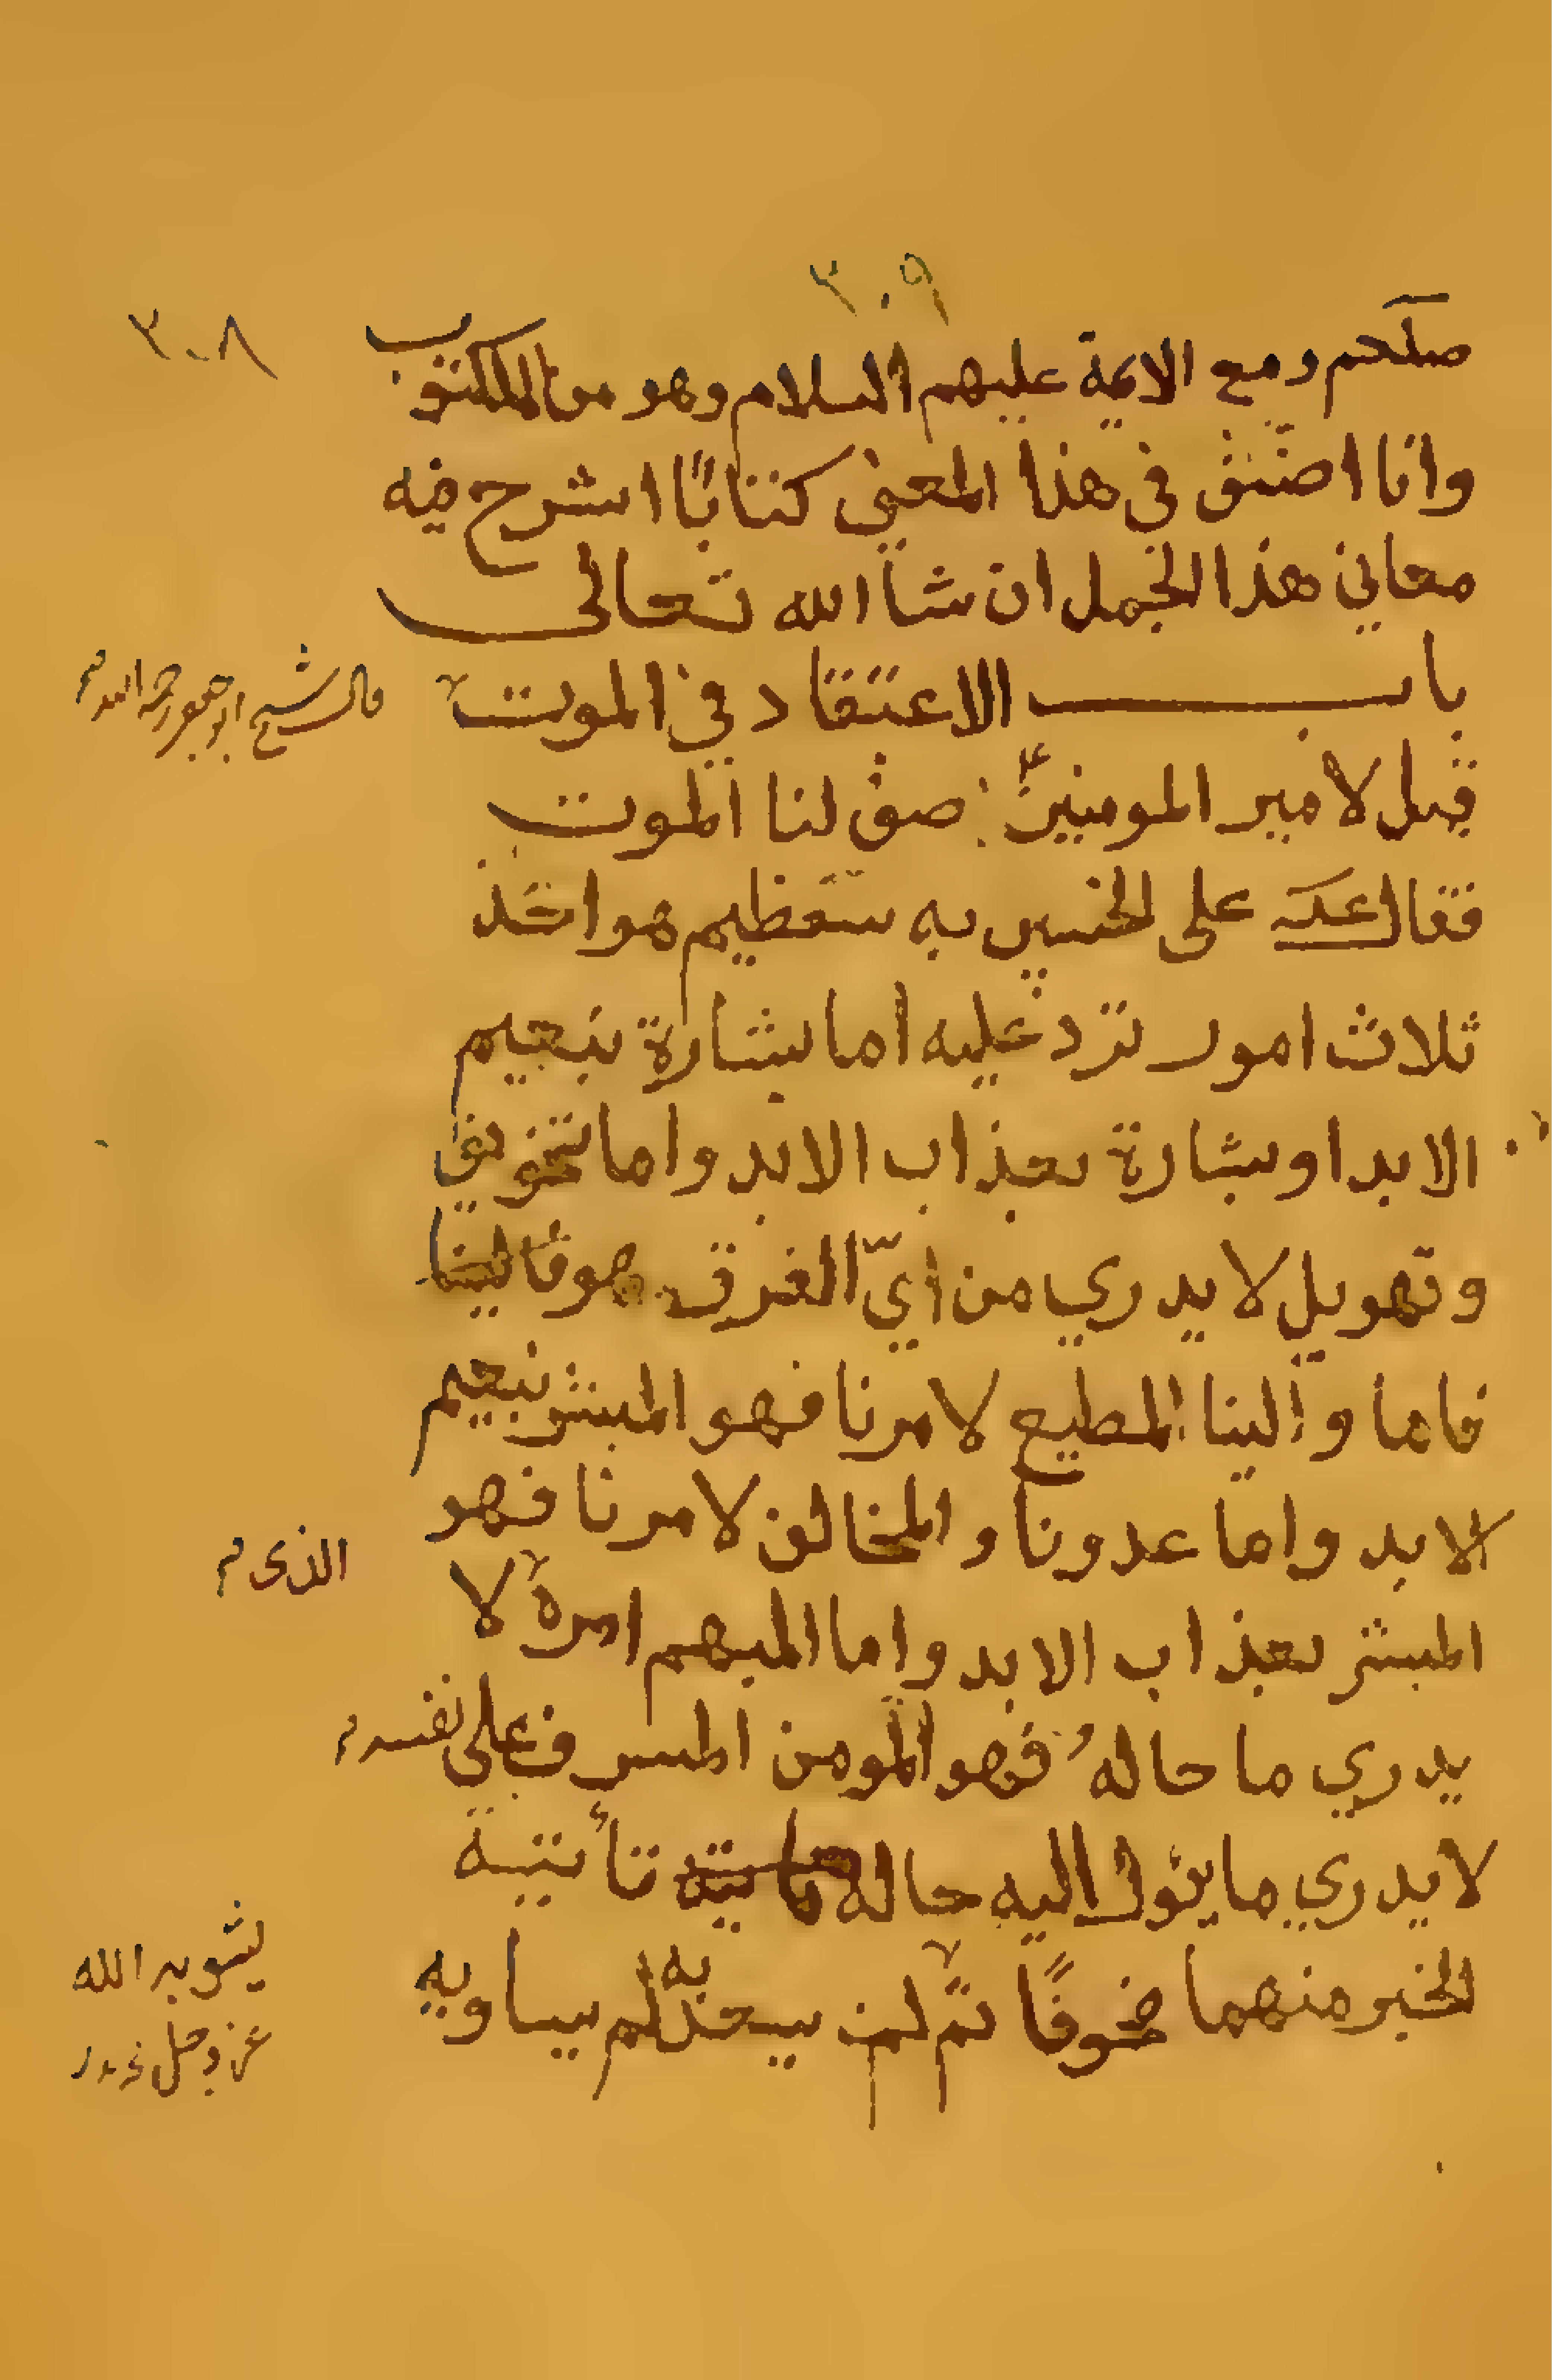 ٣٠٩
٣٠٨
صلعم ومع الايمة عليهم السلام وهو من الملكوت
وانا اصنّف في هذا المعنى كتابًا اشرح فيه
معاني هذا الجمل ان شا الله تعالى
باب الاعتقاد في الموت
قال الشيخ ابو جعفر رحمه الله م
قيل لامير المومنين ع صف لنا الموت
فقال ع م على الخبير به سقطتم هو احد
ثلاث امور ترد عليه اما بشارة بنعيم
الابد او بشارة بعذاب الابد واما تخويف
وتهويل لا يدري من أيّ الفرق هو
فاما والينا المطيع لامرنا فهو المبشر بنعيم
الابد واما عدونا والمخالف لامرنا فهو
المبشر بعذاب الابد واما المبهم امره لا
الذى م
يدري ما حالهُ فهو المومن المسرف على نفسه م
لا يدري ما يئول اليه حاله تأتيه
الخبر منهما خوفًا ثم لن به لم يساويه
الله
عز وجل